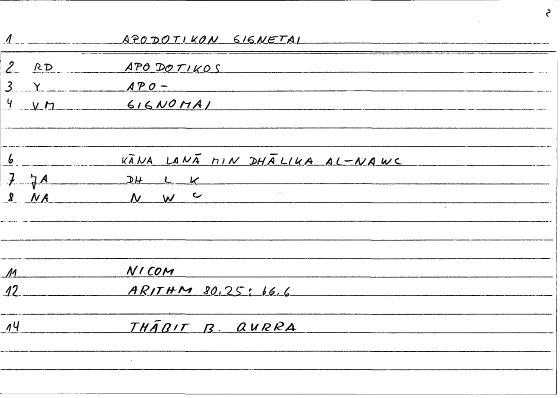 2
1 APODOTIKON GIGNETAI
2 RD APODOTIKOS
3 Y APO-
4 VM GIGNOMAI
6 KĀNA LANĀ MIN DHĀLIKA AL-NAWC
7 JA DH L K
8 NA N W C
11 NICOM
12 ARITHM 80.25: 66.6
14 THĀBIT B. QURRA